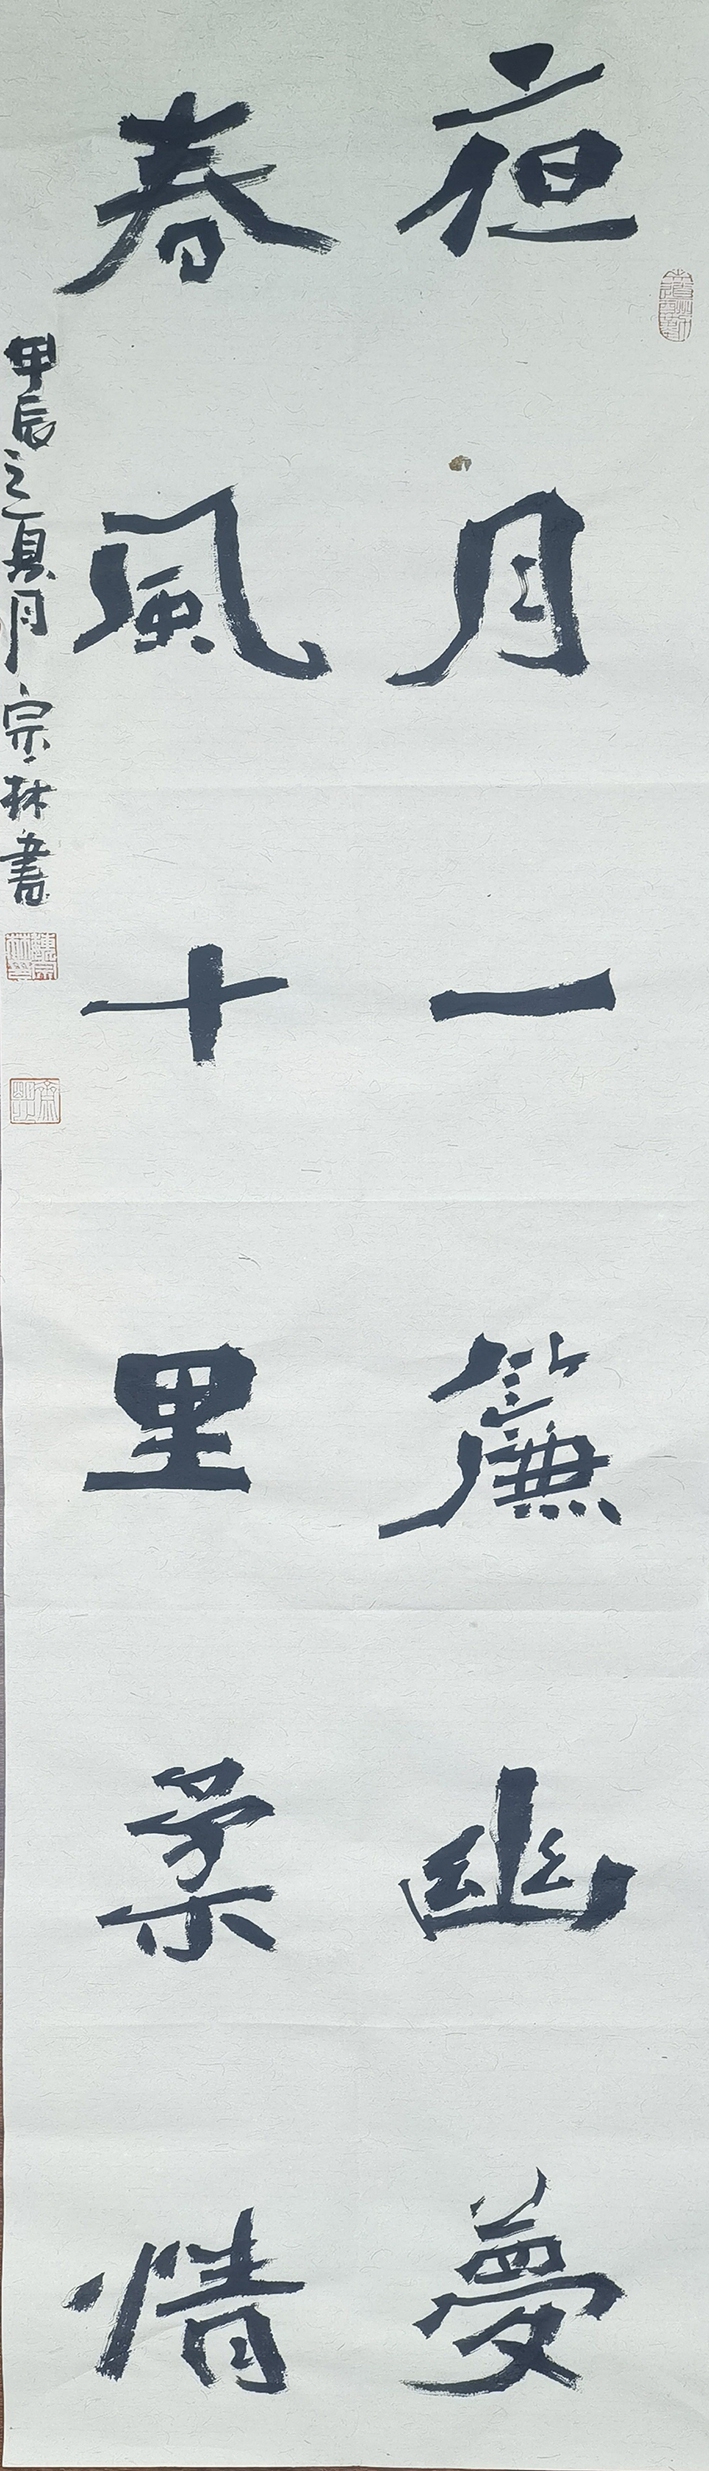 夜月一簾幽夢
春風十里柔情
甲辰之夏月宗林書